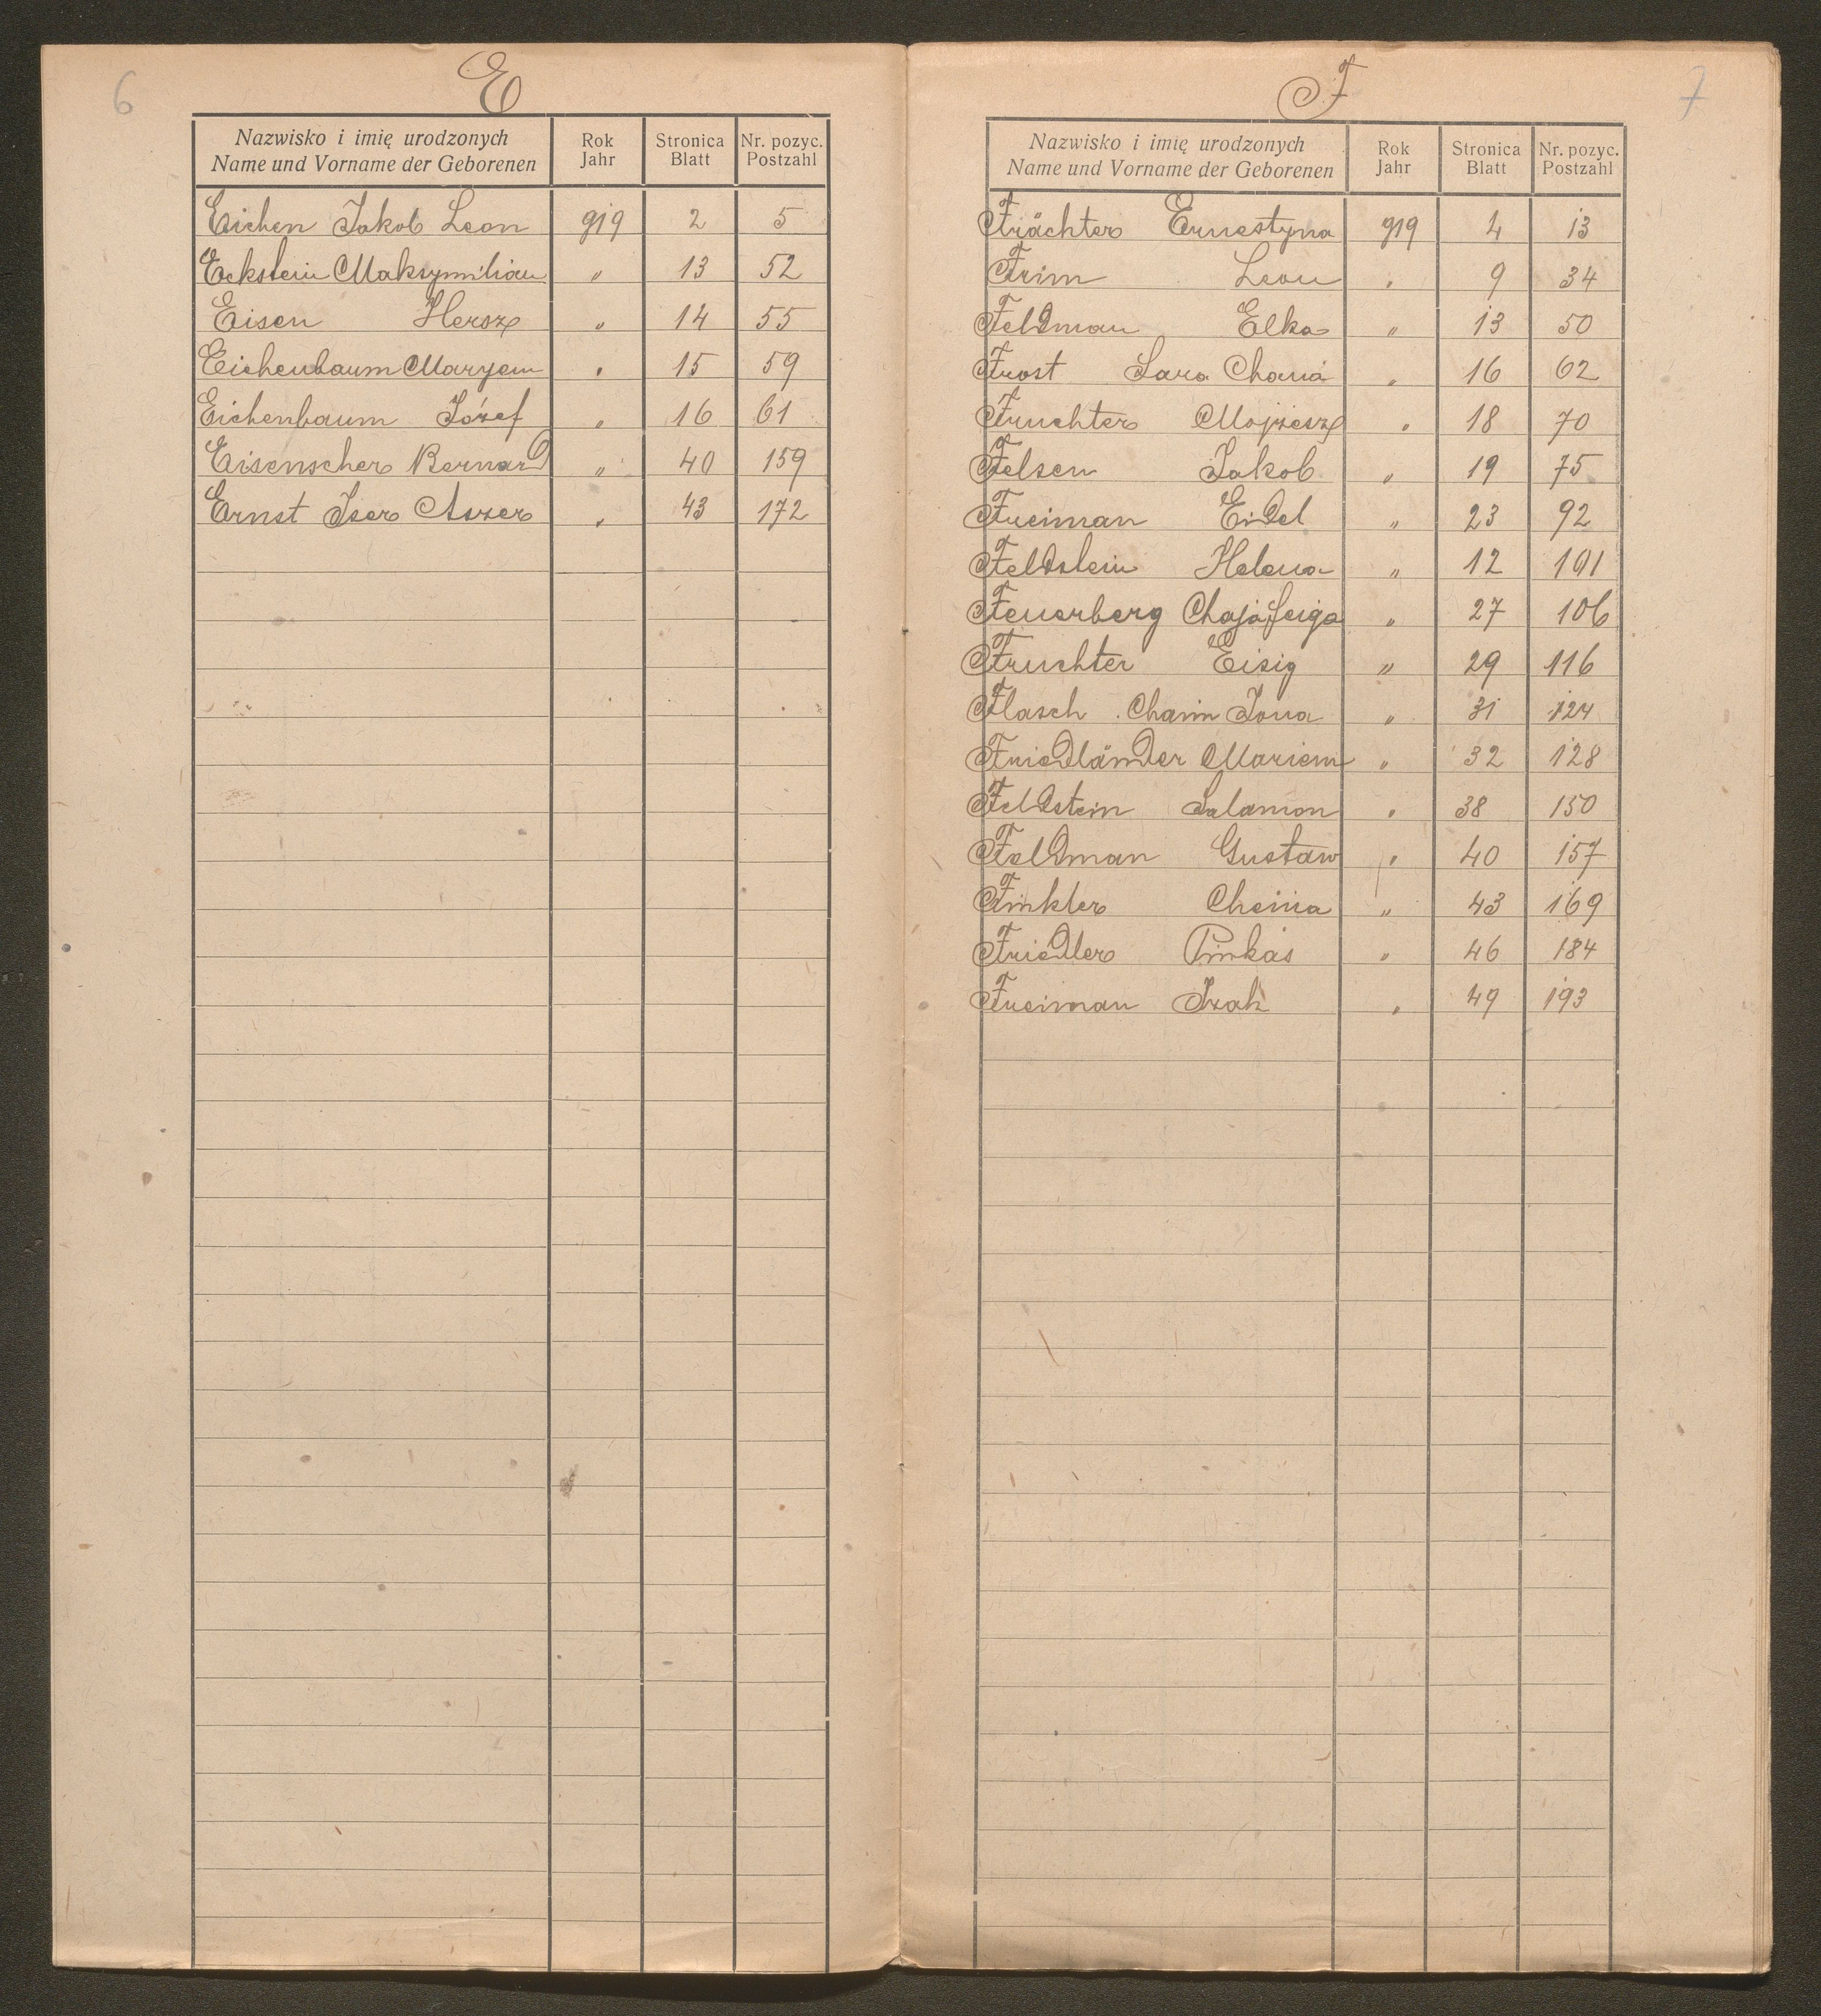 6
E
Nazwisko i imię urodzonych Rok Stronica Nr. pozyc.
Name und Vorname der Geborenen Jahr Blatt Postzahl
Eichen Jakob Leon 919 2 5
Eckstein Maksymilian " 13 52
Eisen Hersz " 14 55
Eichenbaum Maryem " 15 59
Eichenbaum Józef " 16 61
Eisenscher Bernard " 40 159
Ernst Iser Aszer " 43 172
7
F
Nazwisko i imię urodzonych Rok Stronica Nr. pozyc.
Name und Vorname der Geborenen Jahr Blatt Postzahl
Frächter Ernestyna 919 4 13
Frim Leon " 9 34
Feldman Elka " 13 50
Frost Sara Chana " 16 62
Fruchter Mojżesz " 18 70
Felsen Jakob " 19 75
Freiman Eidel " 23 92
Feldstein Helena " 12 191
Feuerberg Chaja feiga " 27 106
Fruchter Eisig " 29 116
Flasch Chaim Jona " 31 124
Friedländer Mariem " 32 128
Feldstein Salamon " 38 150
Feldman Gustaw " 40 157
Finkler Cheina " 43 169
Friedler Pinkas " 46 184
Freiman Izak " 49 193